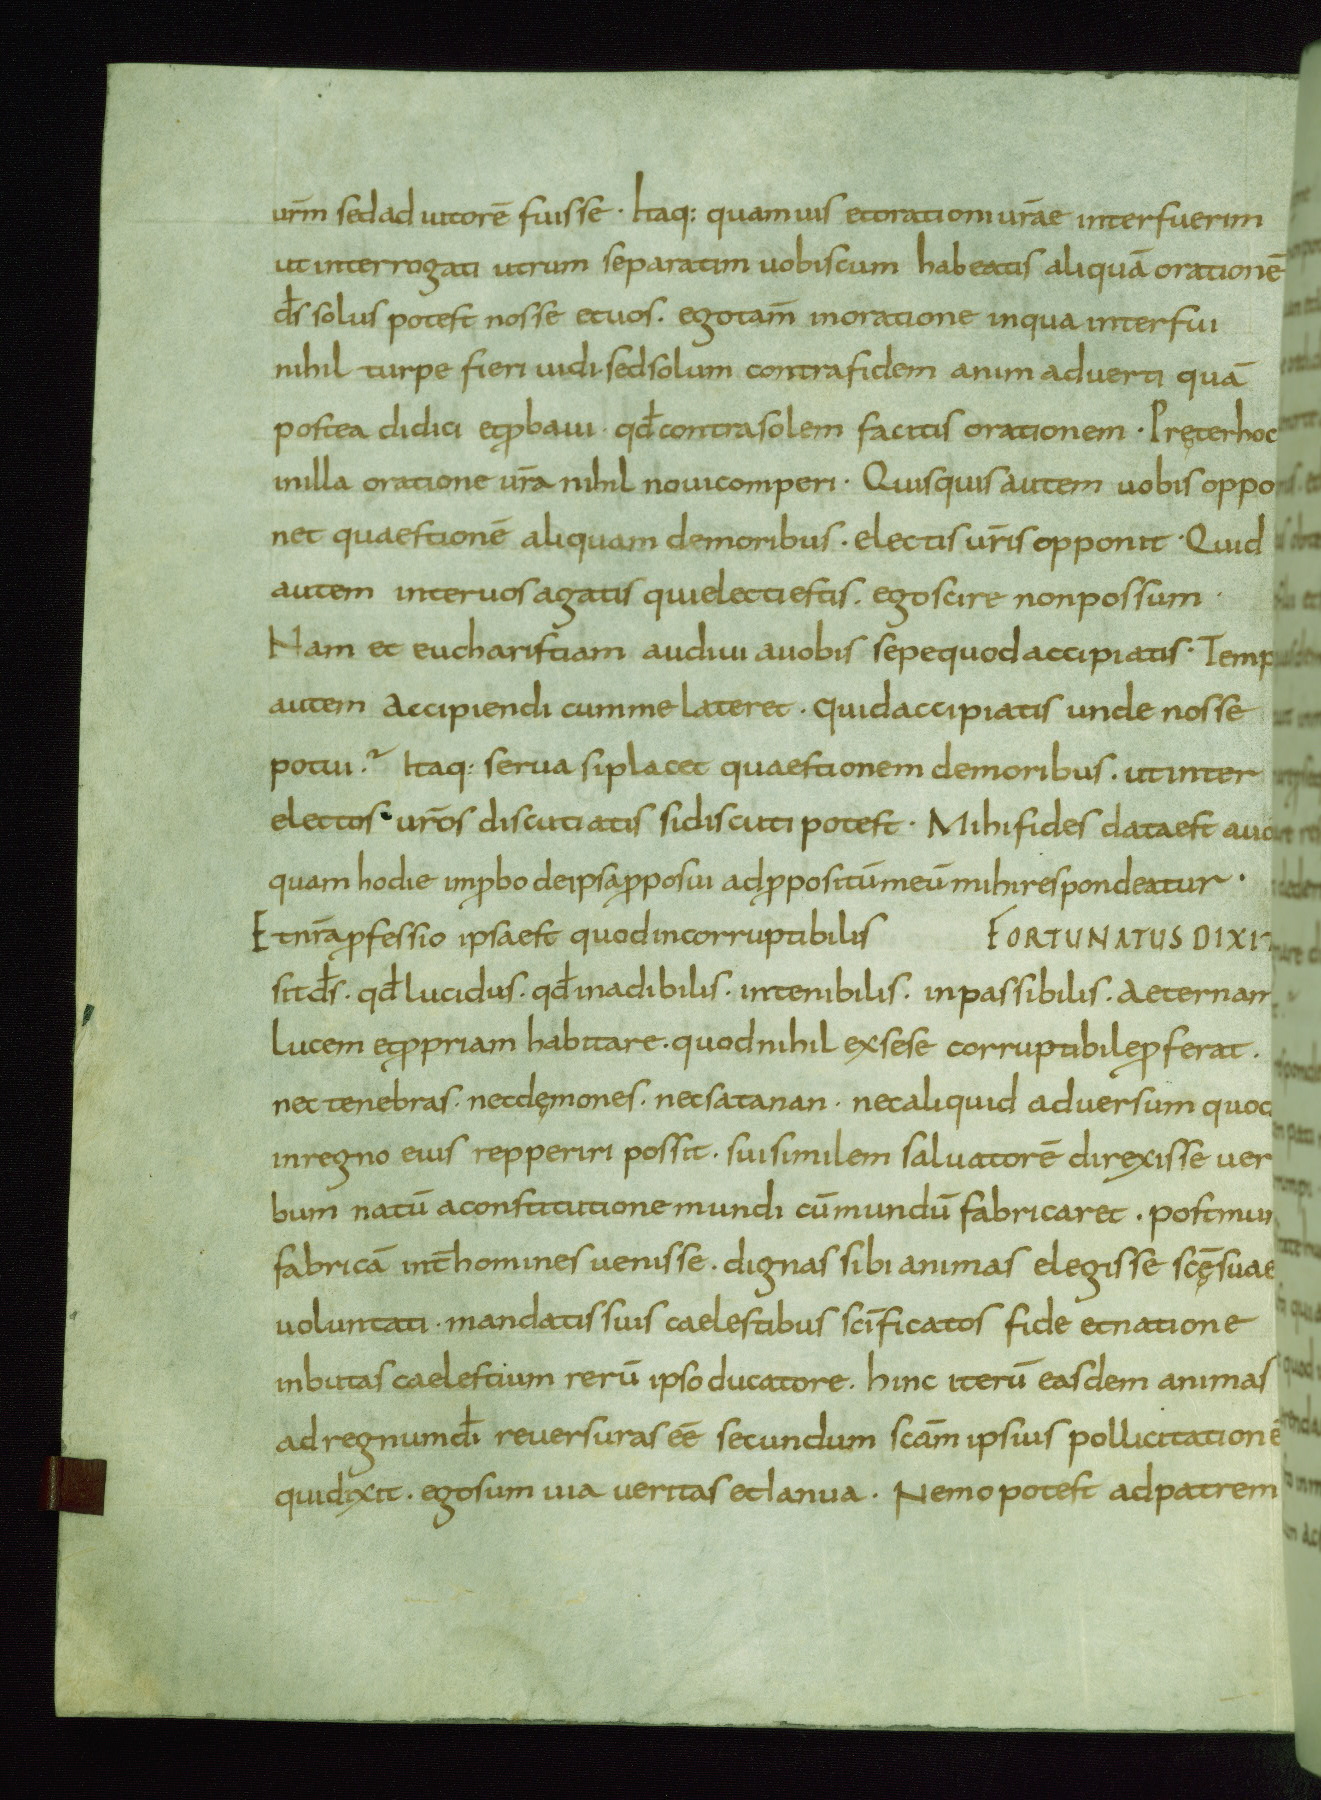 ur̄m sed ad uitorē fuisse · Itaq: quamuis et orationi ur̄ae interfuerim
ut interrogati utrum separatim uobiscum habeatis aliquā orationē
d̄s solus potest nosse et uos . ego tam̄ in oratione in qua interfui
nihil turpe fieri uidi . sed solum contra fidem animaduerti quā
postea didici et ꝓbaui . qđ contra solem facitis orationem · Pręter hoc
in illa oratione ur̄a nihil noui comperi · Quisquis autem uobis oppo
net quaestionē aliquam de moribus . electis ur̄is opponit · Quid
autem inter uos agatis qui electi estis . ego scire non possum ·
Nam et eucharistiam audiui a uobis sepe quod accipiatis · Temp
autem accipiendi cum me lateret . quid accipiatis unde nosse
potui ? Itaq: serua si placet quaestionem de moribus . ut inter
electos ur̄os discutiatis si discuti potest · Mihi fides data est a uo
quam hodie imꝓbo de ipsa ꝓposui ad ꝓpositū meū mihi respondeatur ·
Et nr̄a ꝓfessio ipsa est quod incorruptibilis FORTUNATUS DIXIT
sit d̄s . qđ lucidus . qđ inadibilis . intenibilis . inpassibilis . aeternam
lucem et ꝓpriam habitare . quod nihil ex sese corruptibile ꝓferat .
nec tenebras . nec dęmones . nec satanan . nec aliquid aduersum quod
in regno eius repperiri possit . sui similem saluatorē direxisse uer
bum natū a constitutione mundi cū mundū fabricaret . post mun
fabricā int̄ homines uenisse . dignas sibi animas elegisse sc̄ę suae
voluntati . mandatis suis caelestibus sc̄ificatos fide et natione
inbutas caelestium rerū ipso ducatore . hinc iterū easdem animas
ad regnum dī reuersuras eē secundum sc̄am ipsius pollicitationē
qui dixit . ego sum uia ueritas et Ianua . Nemo potest ad patrem